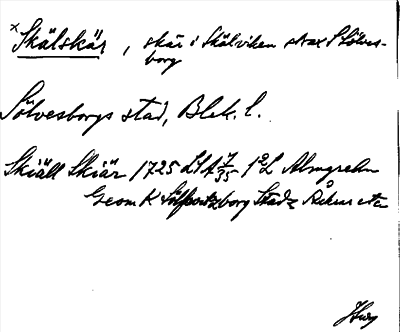 *Skälskär, skär i Skälviken strax S Sölves-
borg
Sölvesborgs stad, Blek. l.
Skiäll Skiär 1725 LSA 7/35 1:2 L Almgrehn
Geom K Sölfvitzborg Stadz Åkrar etc